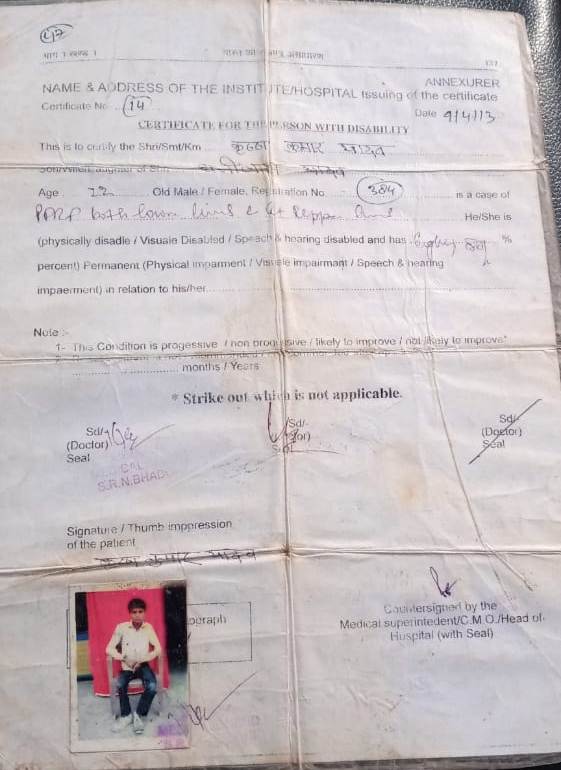 47
भाग १ खण्ड १
137
ANNEXURER
NAME & ADDRESS OF THE INSTITUTE/HOSPITAL Issuing of the certificate
Certificate No. 14
Date 9/4/13
CERTIFICATE FOR THE PERSON WITH DISABILITY
This is to certify the Shri/Smt/Km कृष्णा कुमार यादव
Son/wife/daughter of Shri यादव
Age 22 Old Male / Female, Registration No. 384 is a case of
PPRP both lower limb He/She is
(physically disadle / Visuale Disabled / Speach & hearing disabled and has Eighty 80 %
percent) Permanent (Physical imparment / Visuale impairmant / Speech & hearing
impaerment) in relation to his/her
Note :-
1- This Condition is progessive / non progessive / likely to improve / not likely to improve*
months / Years
* Strike out which is not applicable.
Sd/- Sd/- Sd/-
(Doctor) (Doctor)
Seal Seal Seal
S.R.N.BHAD
Signature / Thumb imppression
of the patient
कृष्णा कुमार यादव
Countersigned by the
Medical superintedent/C.M.O./Head of
Huspital (with Seal)